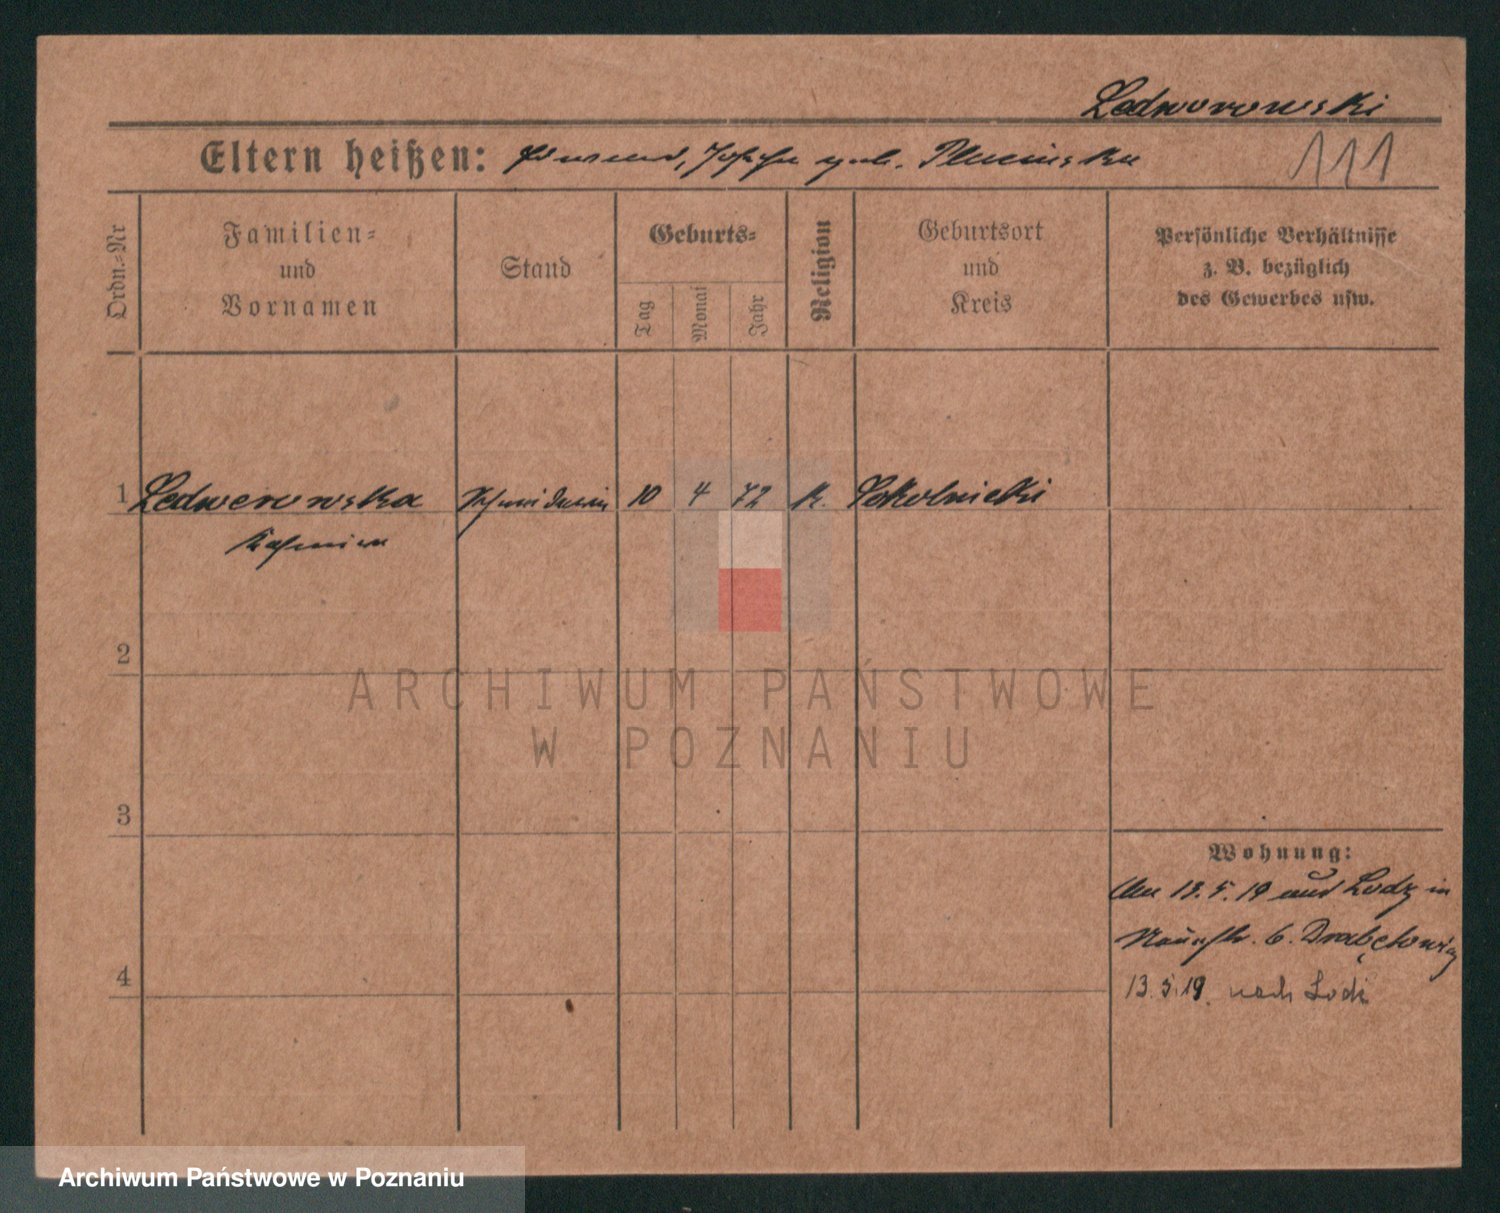 Ledworowski
Eltern heißen: geb. Plucinska
111
Ordn.-Nr
Familien-
und
Vornamen
Stand
Geburts-
Tag
Monat
Jahr
Religion
Geburtsort
und
Kreis
Persönliche Verhältnisse
z. B. bezüglich
des Gewerbes usw.
1 Ledworowska Schneiderin 10 4 72 K. Sokolniki
2
3
4
Wohnung:
13.5.19 aus Lodz in
6.
13.5.19. nach Lodz
ARCHIWUM PAŃSTWOWE
W POZNANIU
Archiwum Państwowe w Poznaniu